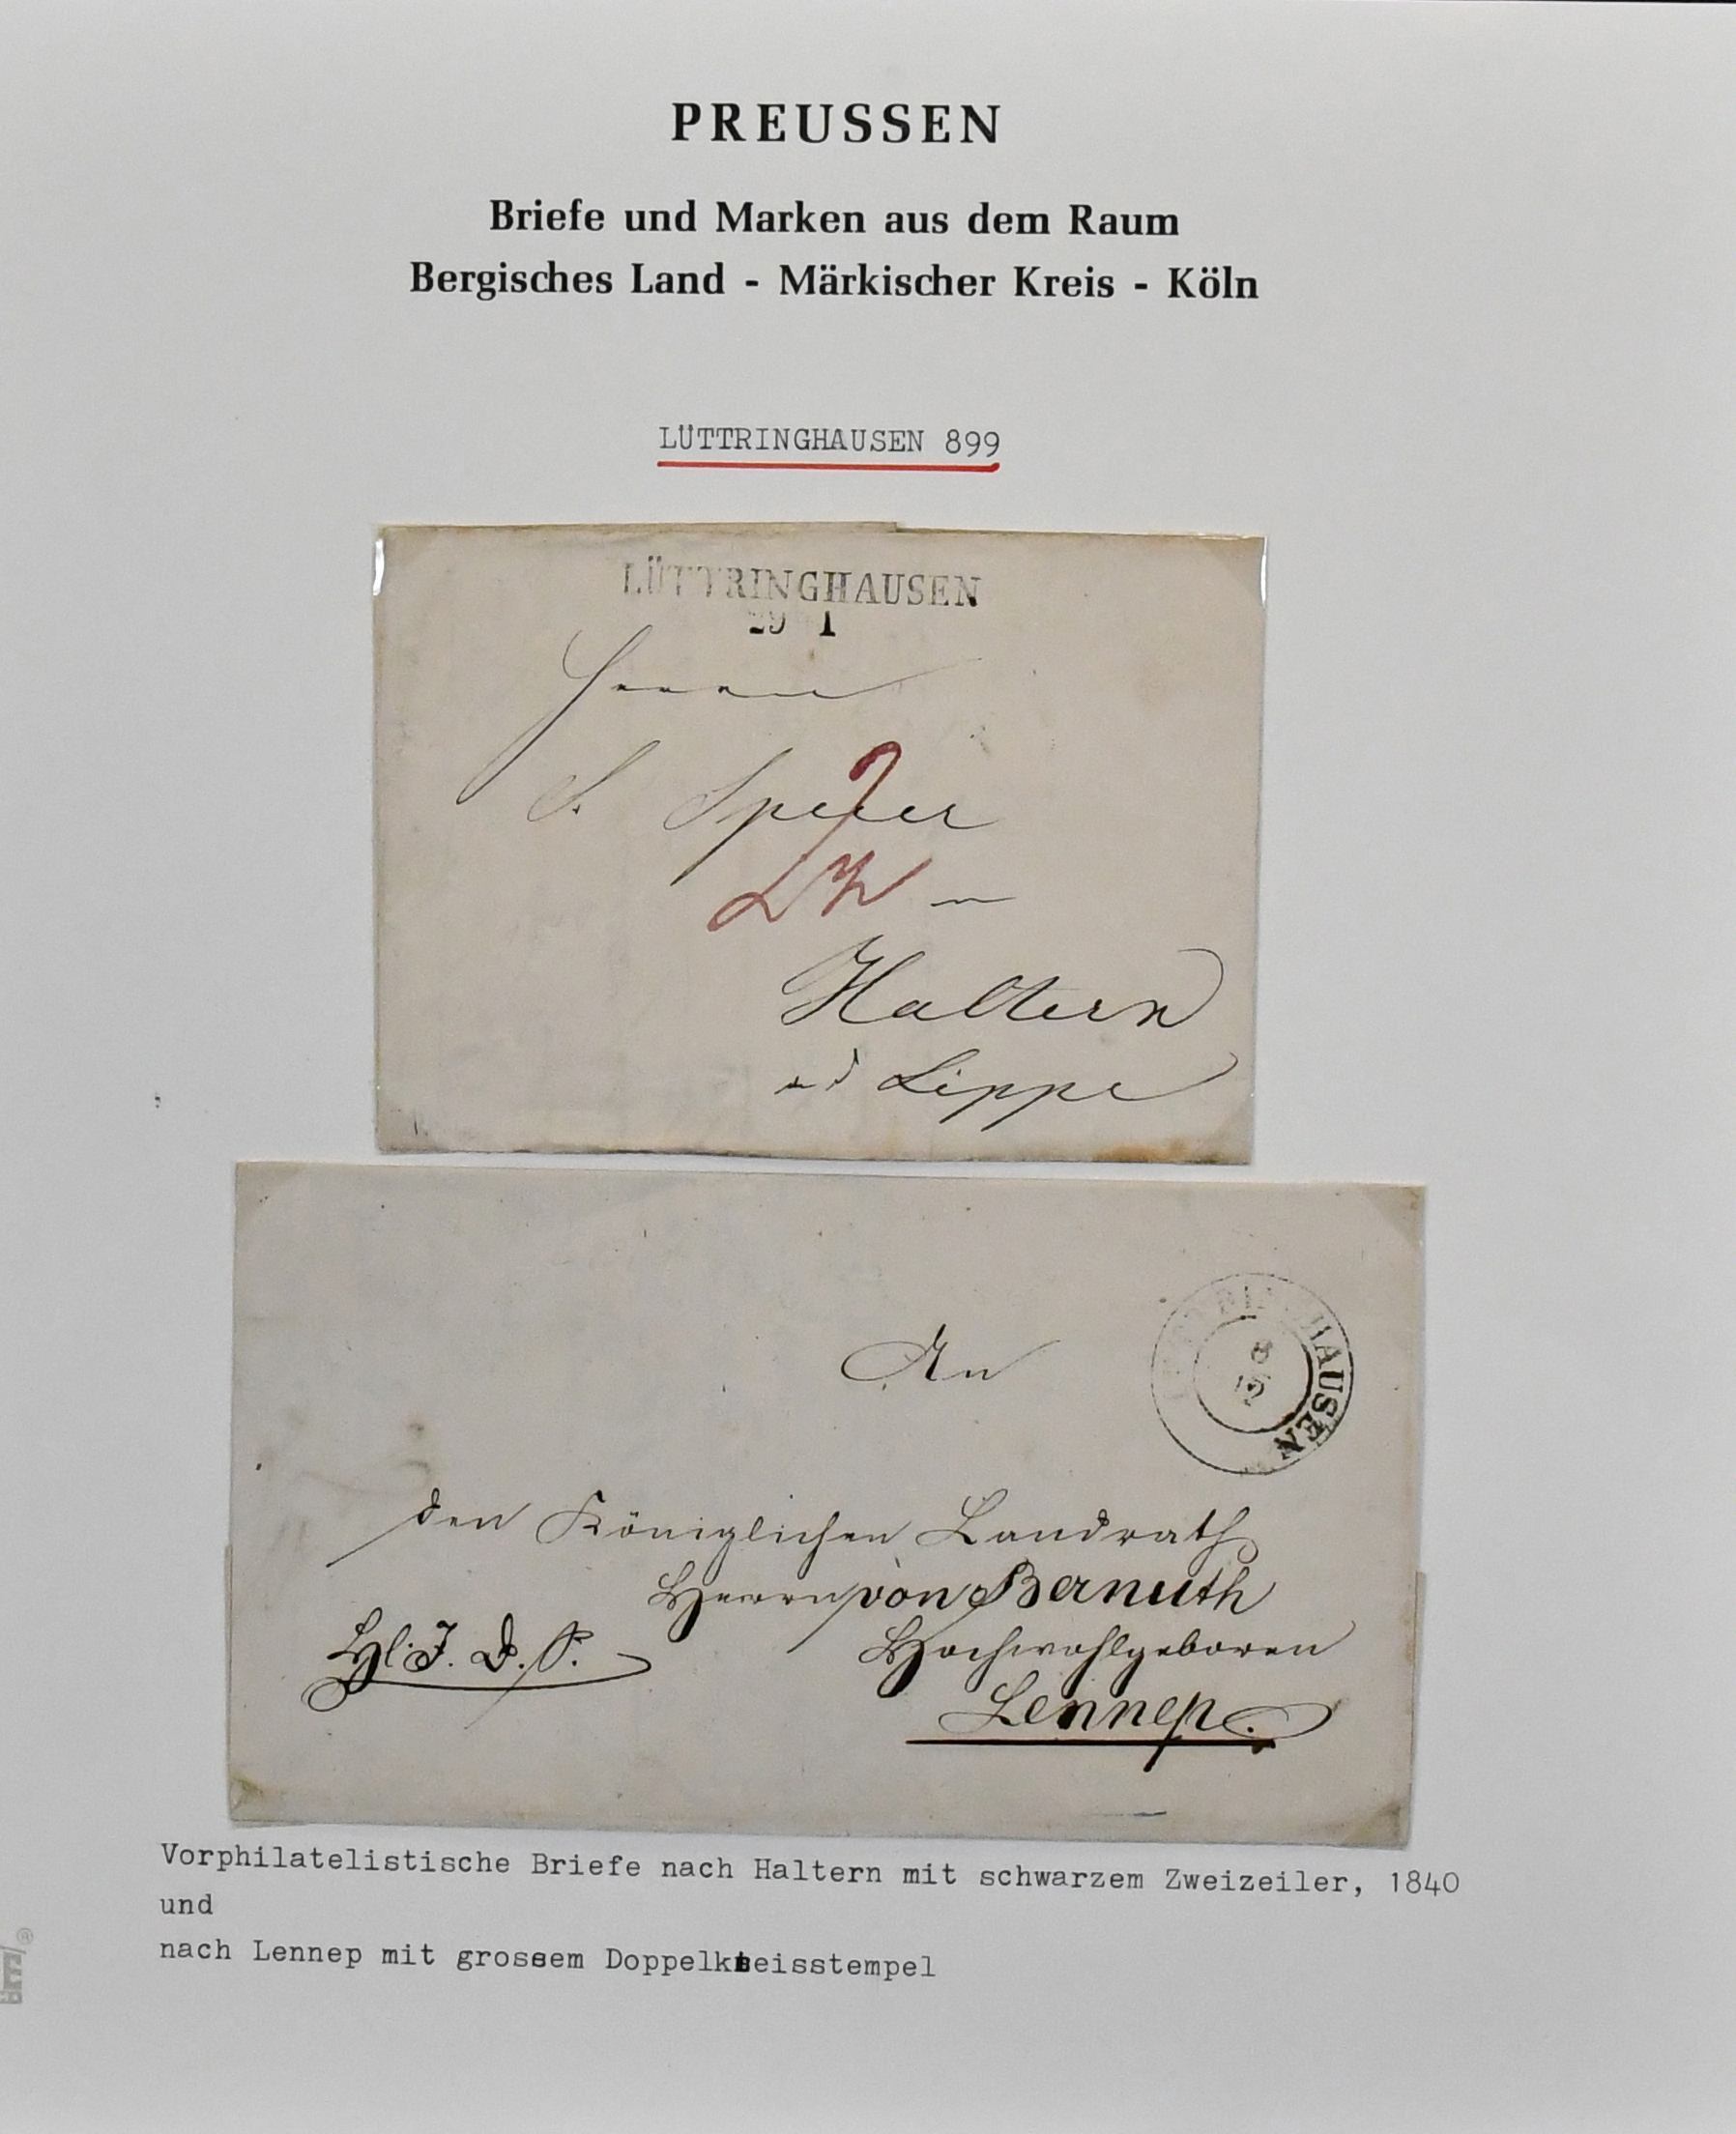 PREUSSEN
Briefe und Marken aus dem Raum
Bergisches Land - Märkischer Kreis - Köln
LÜTTRINGHAUSEN 899
LÜTTRINGHAUSEN
29 1
Herrn
S. Speier
Haltern
a d Lippe
An
HAUSEN
8
den Königlichen Landrath
Herrn von Bernuth
Hochwohlgeboren
Lennep.
Vorphilatelistische Briefe nach Haltern mit schwarzem Zweizeiler, 1840
und
nach Lennep mit grossem Doppelkreisstempel